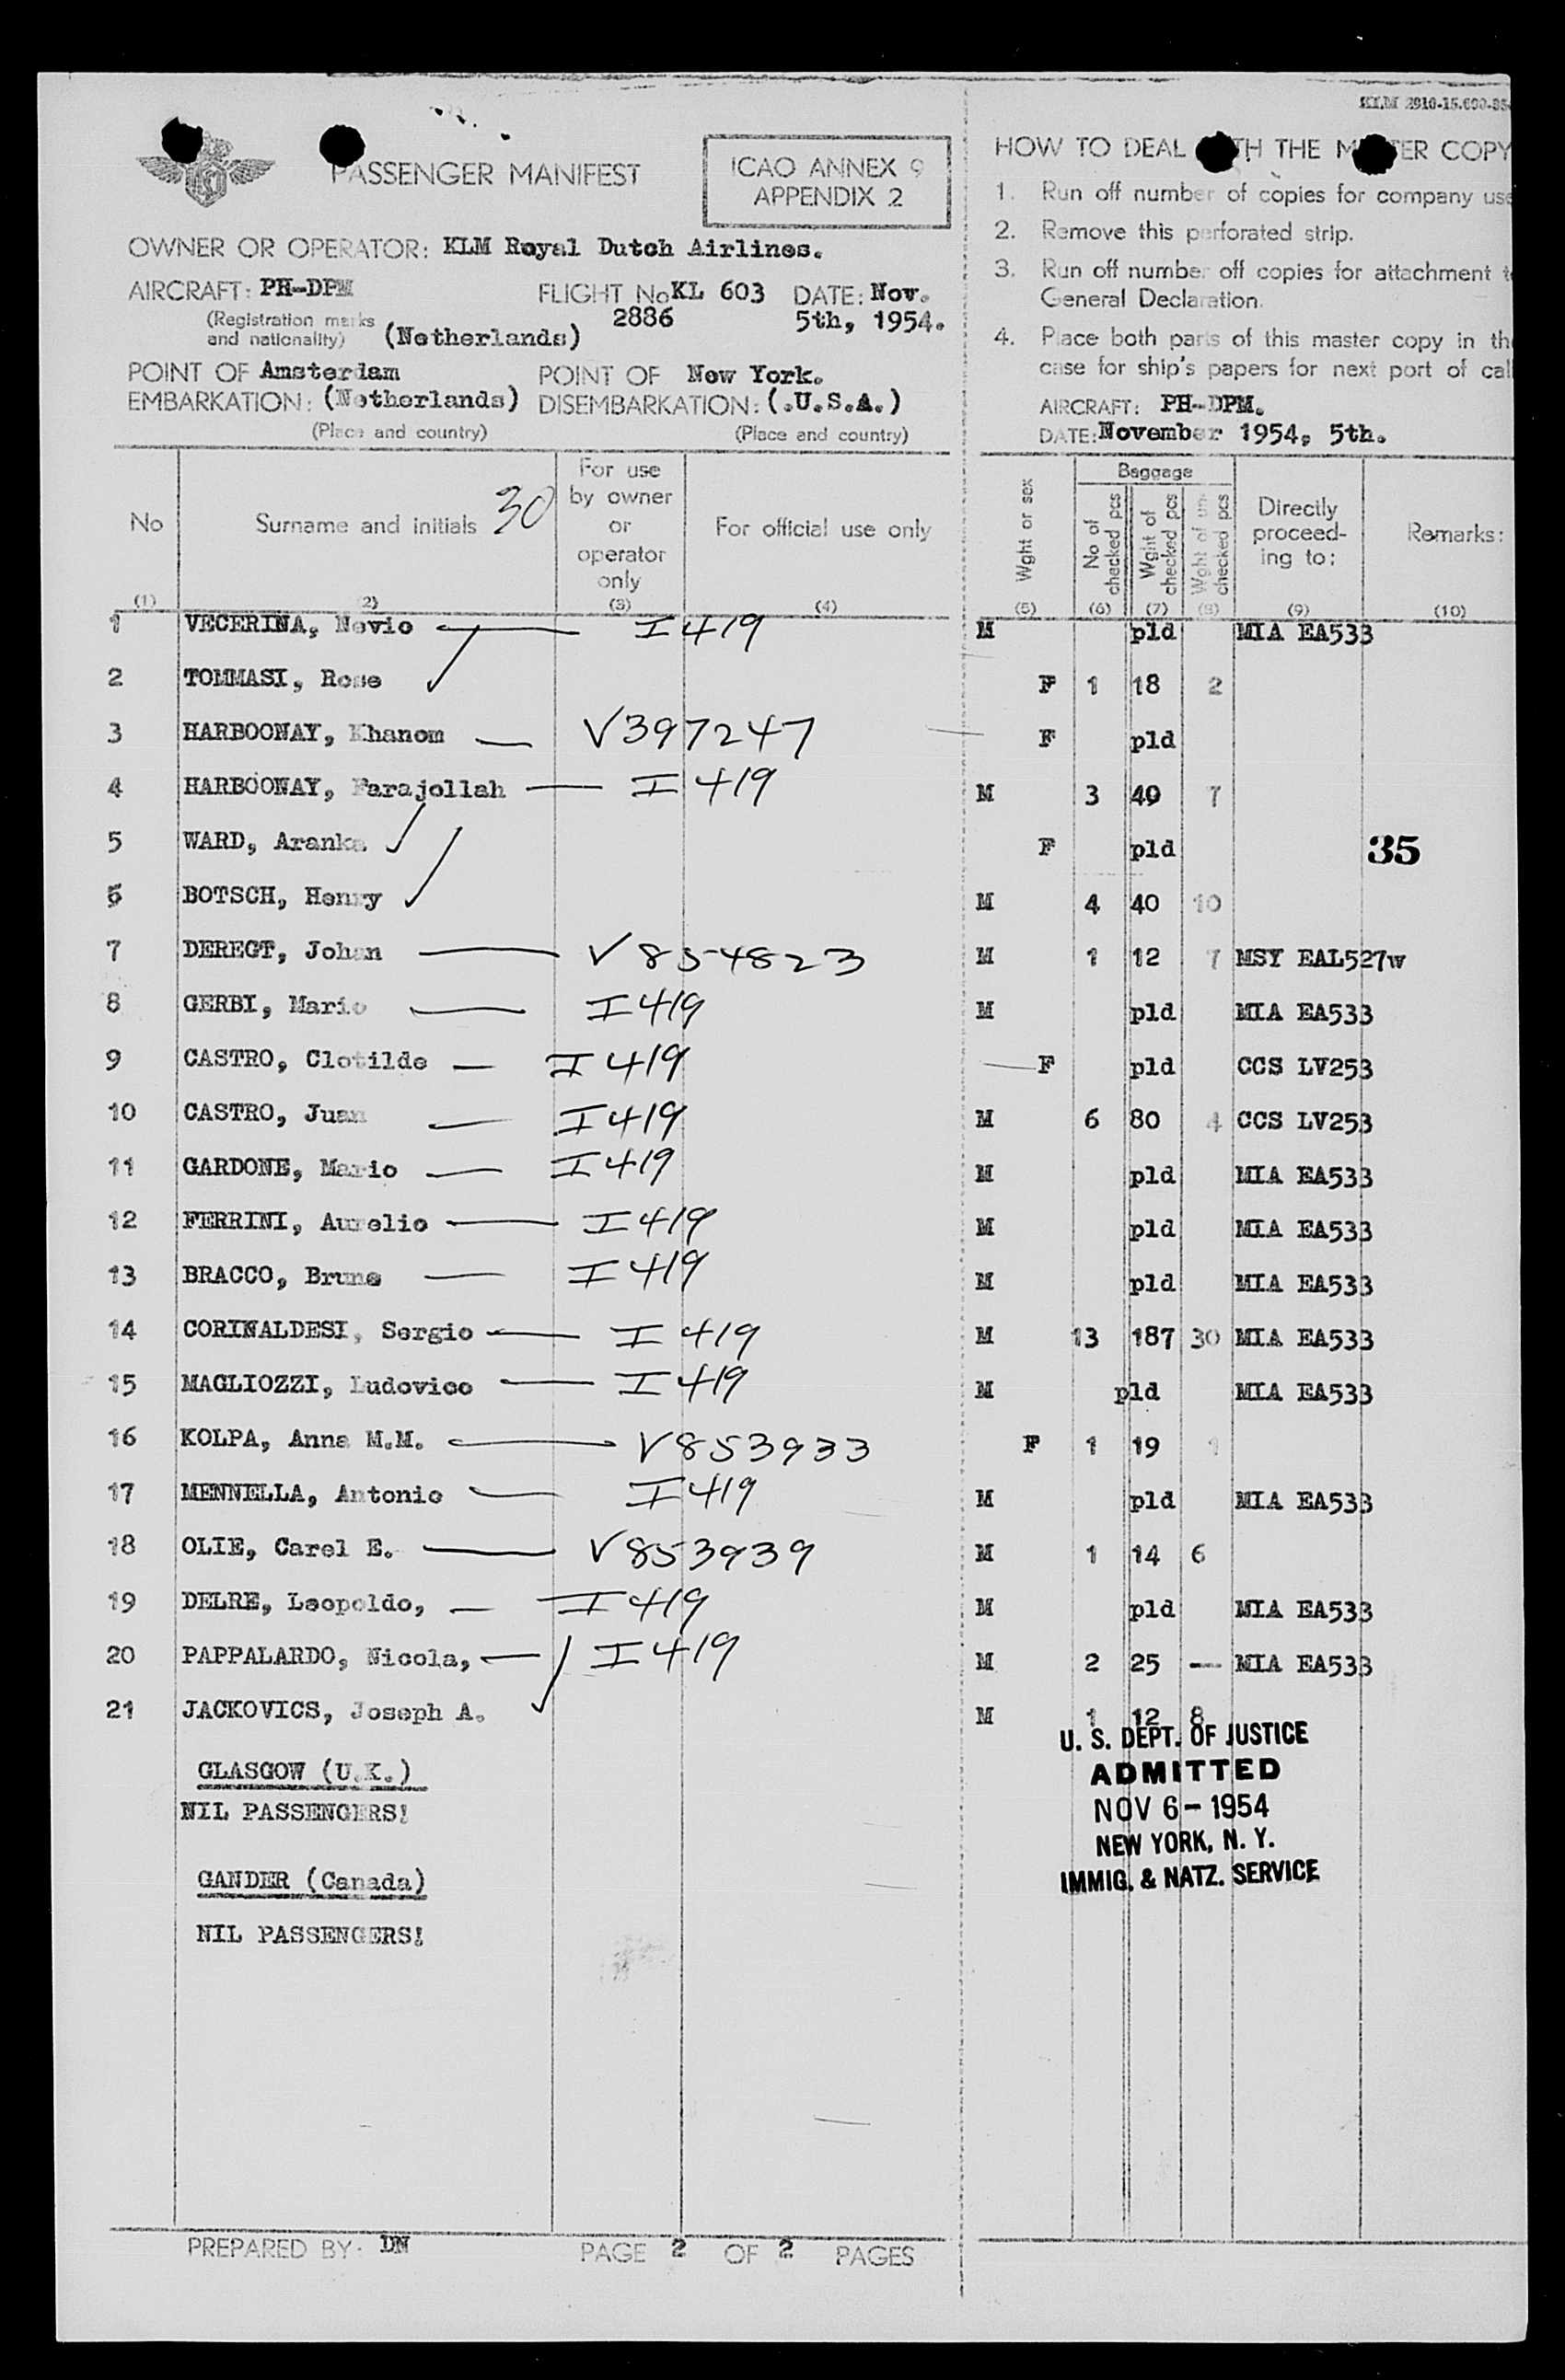 KLM 2910-15.000-
PASSENGER MANIFEST
ICAO ANNEX 9
APPENDIX 2
OWNER OR OPERATOR: KLM Royal Dutch Airlines.
AIRCRAFT: PH-DPM FLIGHT No KL 603 DATE: Nov.
(Registration marks and nationality) (Netherlands) 2886 5th, 1954.
POINT OF EMBARKATION: Amsterdam (Netherlands) POINT OF DISEMBARKATION: New York. (.U.S.A.)
(Place and country) (Place and country)
HOW TO DEAL TH THE M TER COPY
1. Run off number of copies for company use
2. Remove this perforated strip.
3. Run off number off copies for attachment t
General Declaration.
4. Place both parts of this master copy in th
case for ship's papers for next port of cal
AIRCRAFT: PH-DPM.
DATE: November 1954, 5th.
No Surname and initials 30 For use by owner or operator only For official use only Wght or sex Baggage No of checked pcs Wght of checked pcs Wght of un- checked pcs Directly proceed- ing to: Remarks:
(1) (2) (3) (4) (5) (6) (7) (8) (9) (10)
1 VECERINA, Nevio I 419 M pld MIA EA533
2 TOMMASI, Rose F 1 18 2
3 HARBOONAY, Khanom V397247 F pld
4 HARBOONAY, Farajollah I 419 M 3 49 7
5 WARD, Aranka F pld 35
6 BOTSCH, Henry M 4 40 10
7 DEREGT, Johan V854823 M 1 12 7 MSY EAL527w
8 GERBI, Mario I 419 M pld MIA EA533
9 CASTRO, Clotilde I 419 F pld CCS LV253
10 CASTRO, Juan I 419 M 6 80 4 CCS LV253
11 GARDONE, Mario I 419 M pld MIA EA533
12 FERRINI, Aurelio I 419 M pld MIA EA533
13 BRACCO, Bruno I 419 M pld MIA EA533
14 CORINALDESI, Sergio I 419 M 13 187 30 MIA EA533
15 MAGLIOZZI, Ludovico I 419 M pld MIA EA533
16 KOLPA, Anna M.M. V853933 F 1 19 1
17 MENNELLA, Antonio I 419 M pld MIA EA533
18 OLIE, Carel E. V853939 M 1 14 6
19 DELRE, Leopoldo, I 419 M pld MIA EA533
20 PAPPALARDO, Nicola, I 419 M 2 25 — MIA EA533
21 JACKOVICS, Joseph A. M 1 12 8
GLASGOW (U.K.)
NIL PASSENGERS!
GANDER (Canada)
NIL PASSENGERS!
U. S. DEPT. OF JUSTICE
ADMITTED
NOV 6 - 1954
NEW YORK, N. Y.
IMMIG. & NATZ. SERVICE
PREPARED BY. DN PAGE 2 OF 2 PAGES